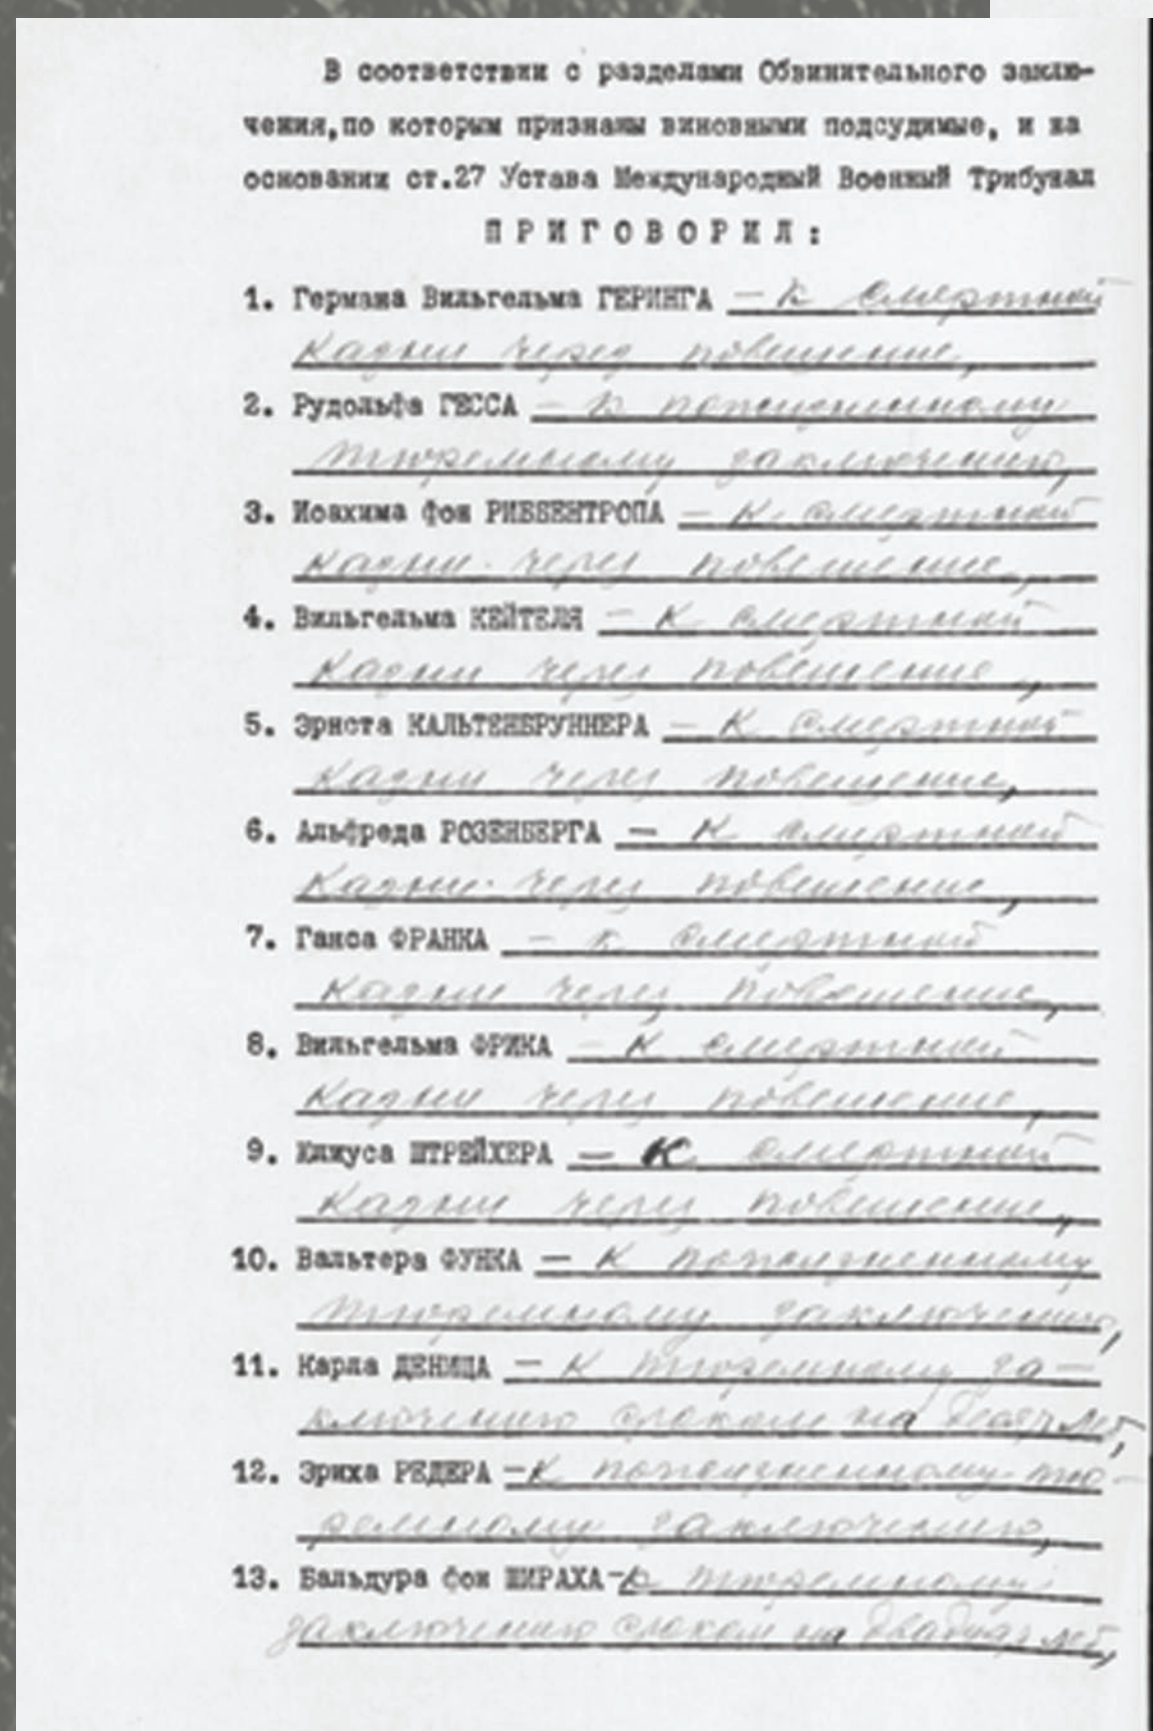 В соответствии с разделами Обвинительного заклю-
чения,по которым признаны виновными подсудимые, и на
основании ст.27 Устава Международный Военный Трибунал
ПРИГОВОРИЛ:
1. Германа Вильгельма ГЕРИНГА — к смертной
казни через повешение,
2. Рудольфа ГЕССА — к пожизненному
тюремному заключению,
3. Иоахима фон РИББЕНТРОПА — к смертной
казни через повешение,
4. Вильгельма КЕЙТЕЛЯ — к смертной
казни через повешение,
5. Эрнста КАЛЬТЕНБРУННЕРА — к смертной
казни через повешение,
6. Альфреда РОЗЕНБЕРГА — к смертной
казни через повешение,
7. Ганса ФРАНКА — к смертной
казни через повешение,
8. Вильгельма ФРИКА — к смертной
казни через повешение,
9. Юлиуса ШТРЕЙХЕРА — к смертной
казни через повешение,
10. Вальтера ФУНКА — к пожизненному
тюремному заключению,
11. Карла ДЕНИЦА — к тюремному за—
ключению сроком на десять лет,
12. Эриха РЕДЕРА — к пожизненному тю-
ремному заключению,
13. Бальдура фон ШИРАХА-к тюремному
заключению сроком на двадцать лет,